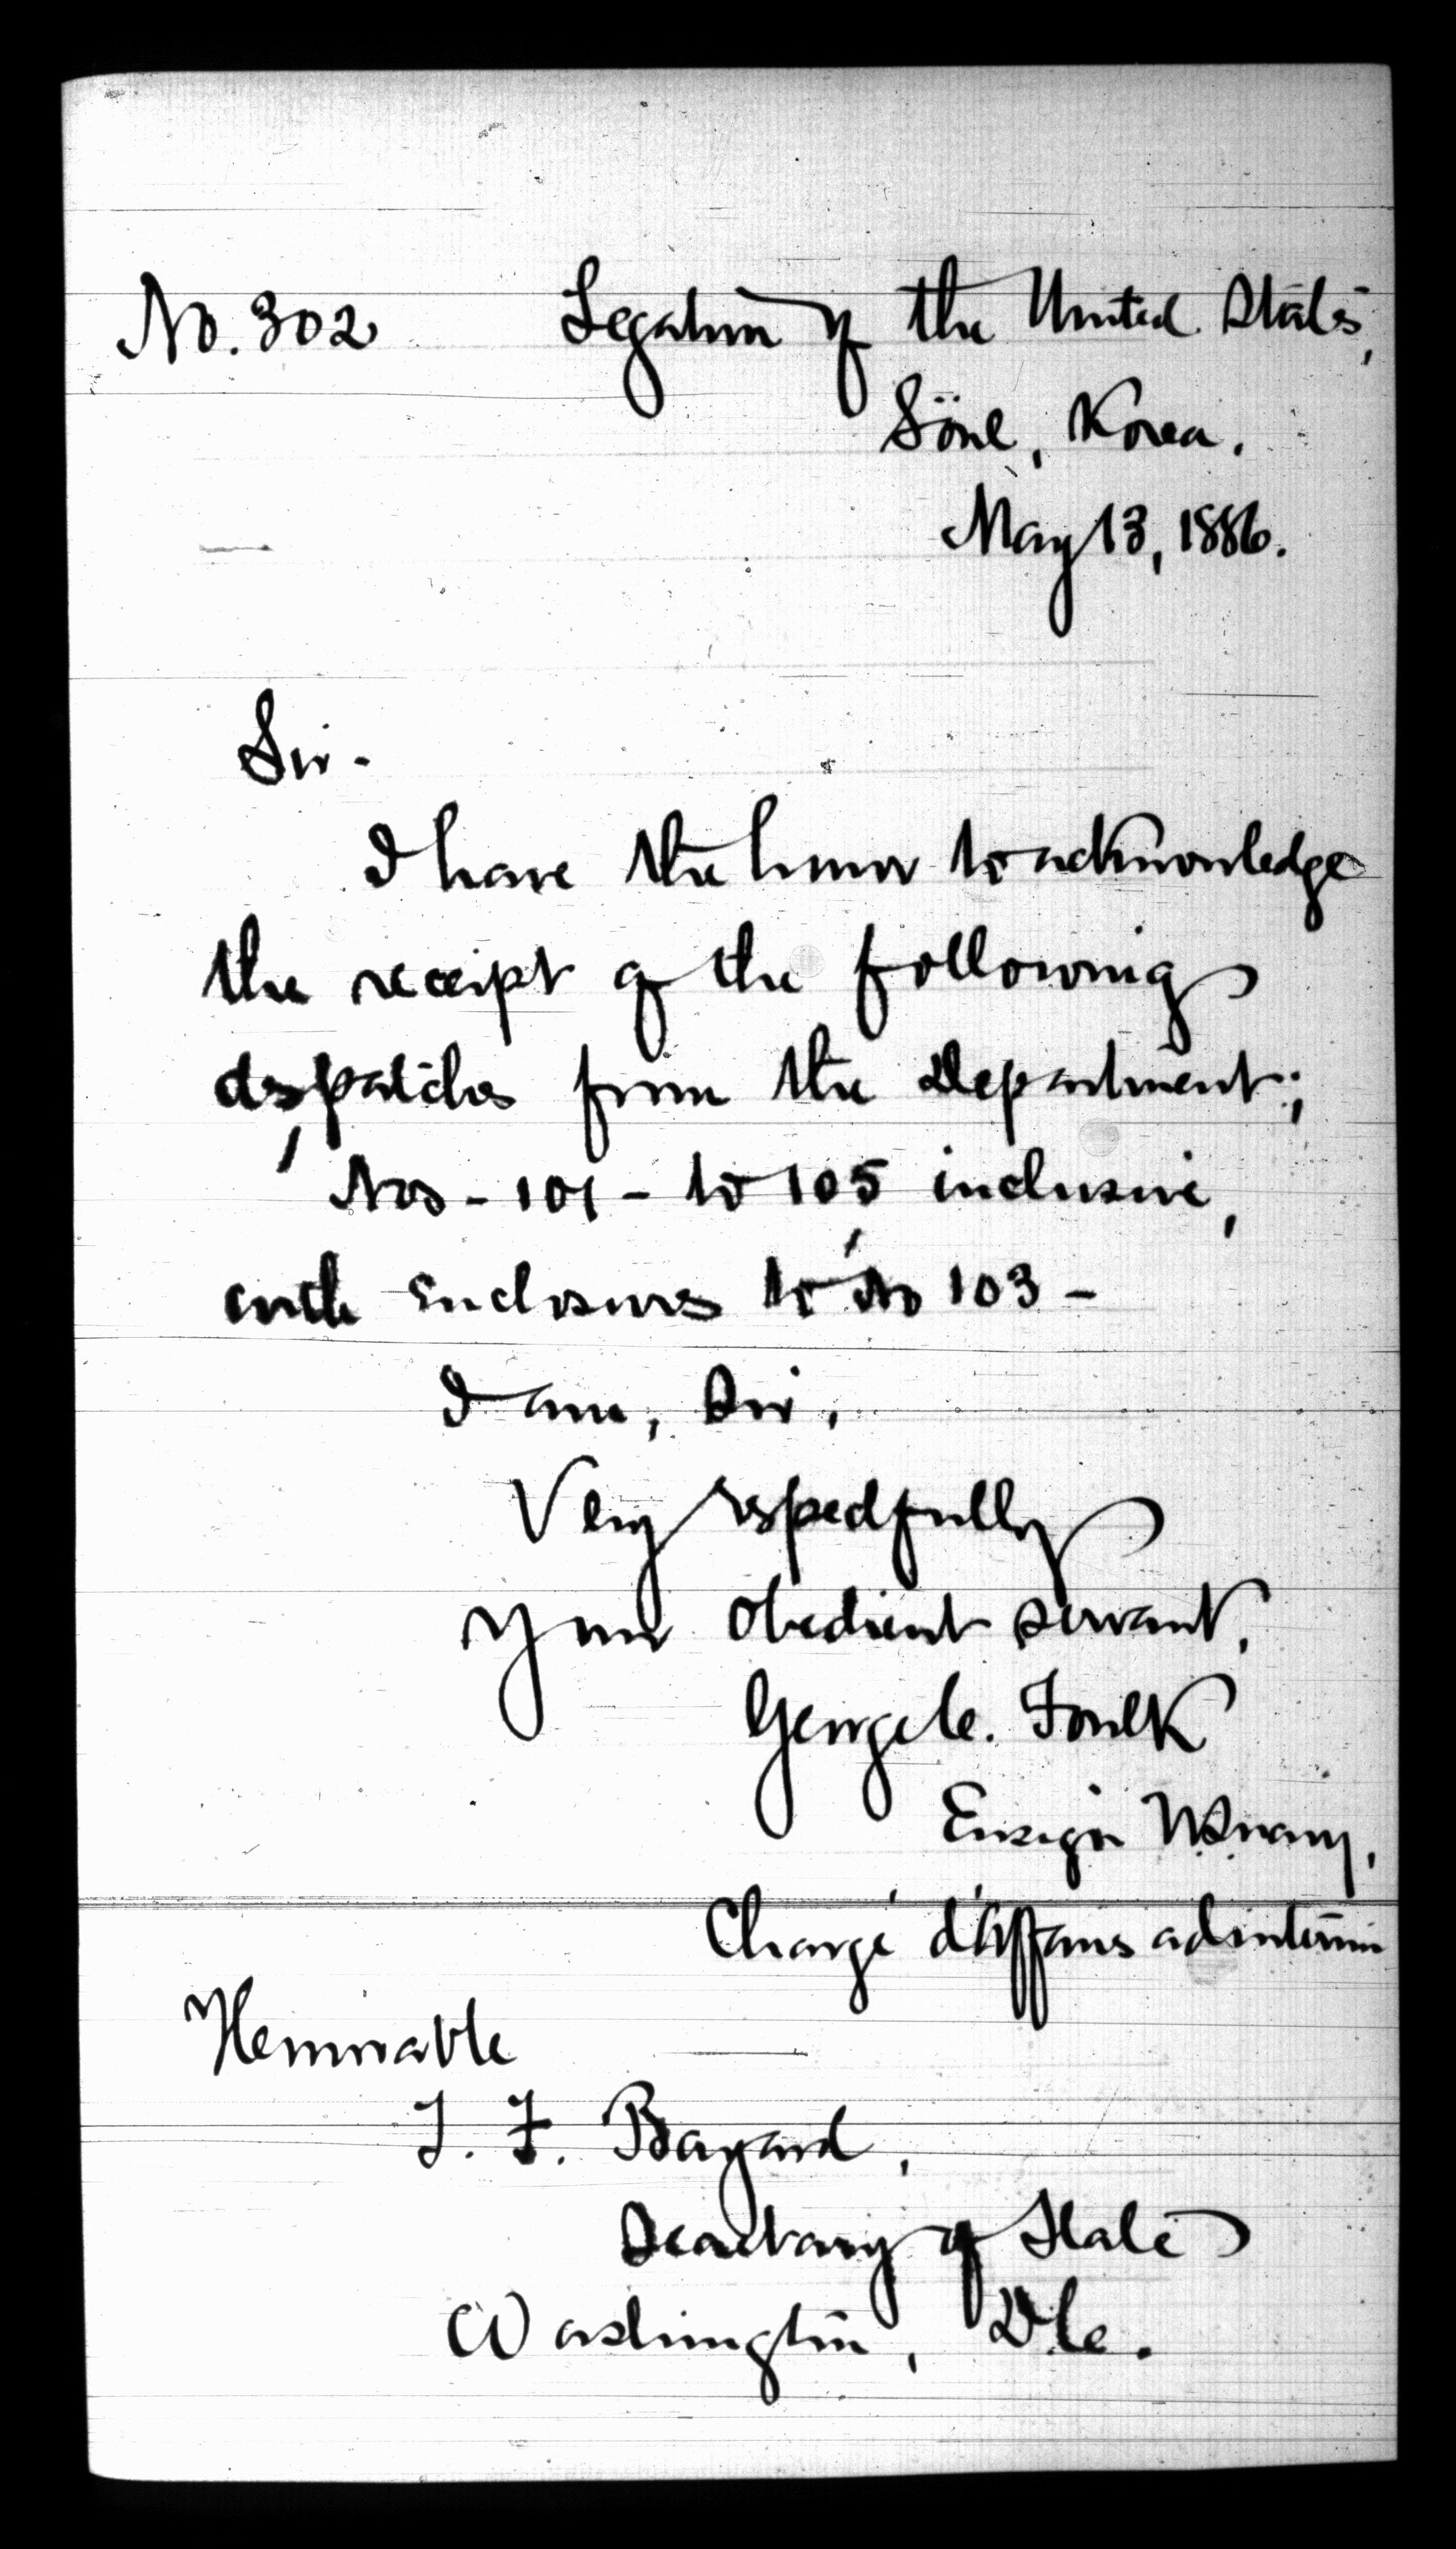 No. 302 Legation of the United States,
Söul, Korea.
May 13, 1886.
Sir -
I have the honor to acknowledge
the receipt of the following
dispatches from the Department;
Nos - 101 - to 105 inclusive,
with enclosures to No 103 -
I am, Sir,
Very respectfully
Your obedient servant,
George C. Foulk
Ensign U.S. Navy,
Chargé d'Affaires ad interim
Honorable
T. F. Bayard,
Secretary of State
Washington, D.C.